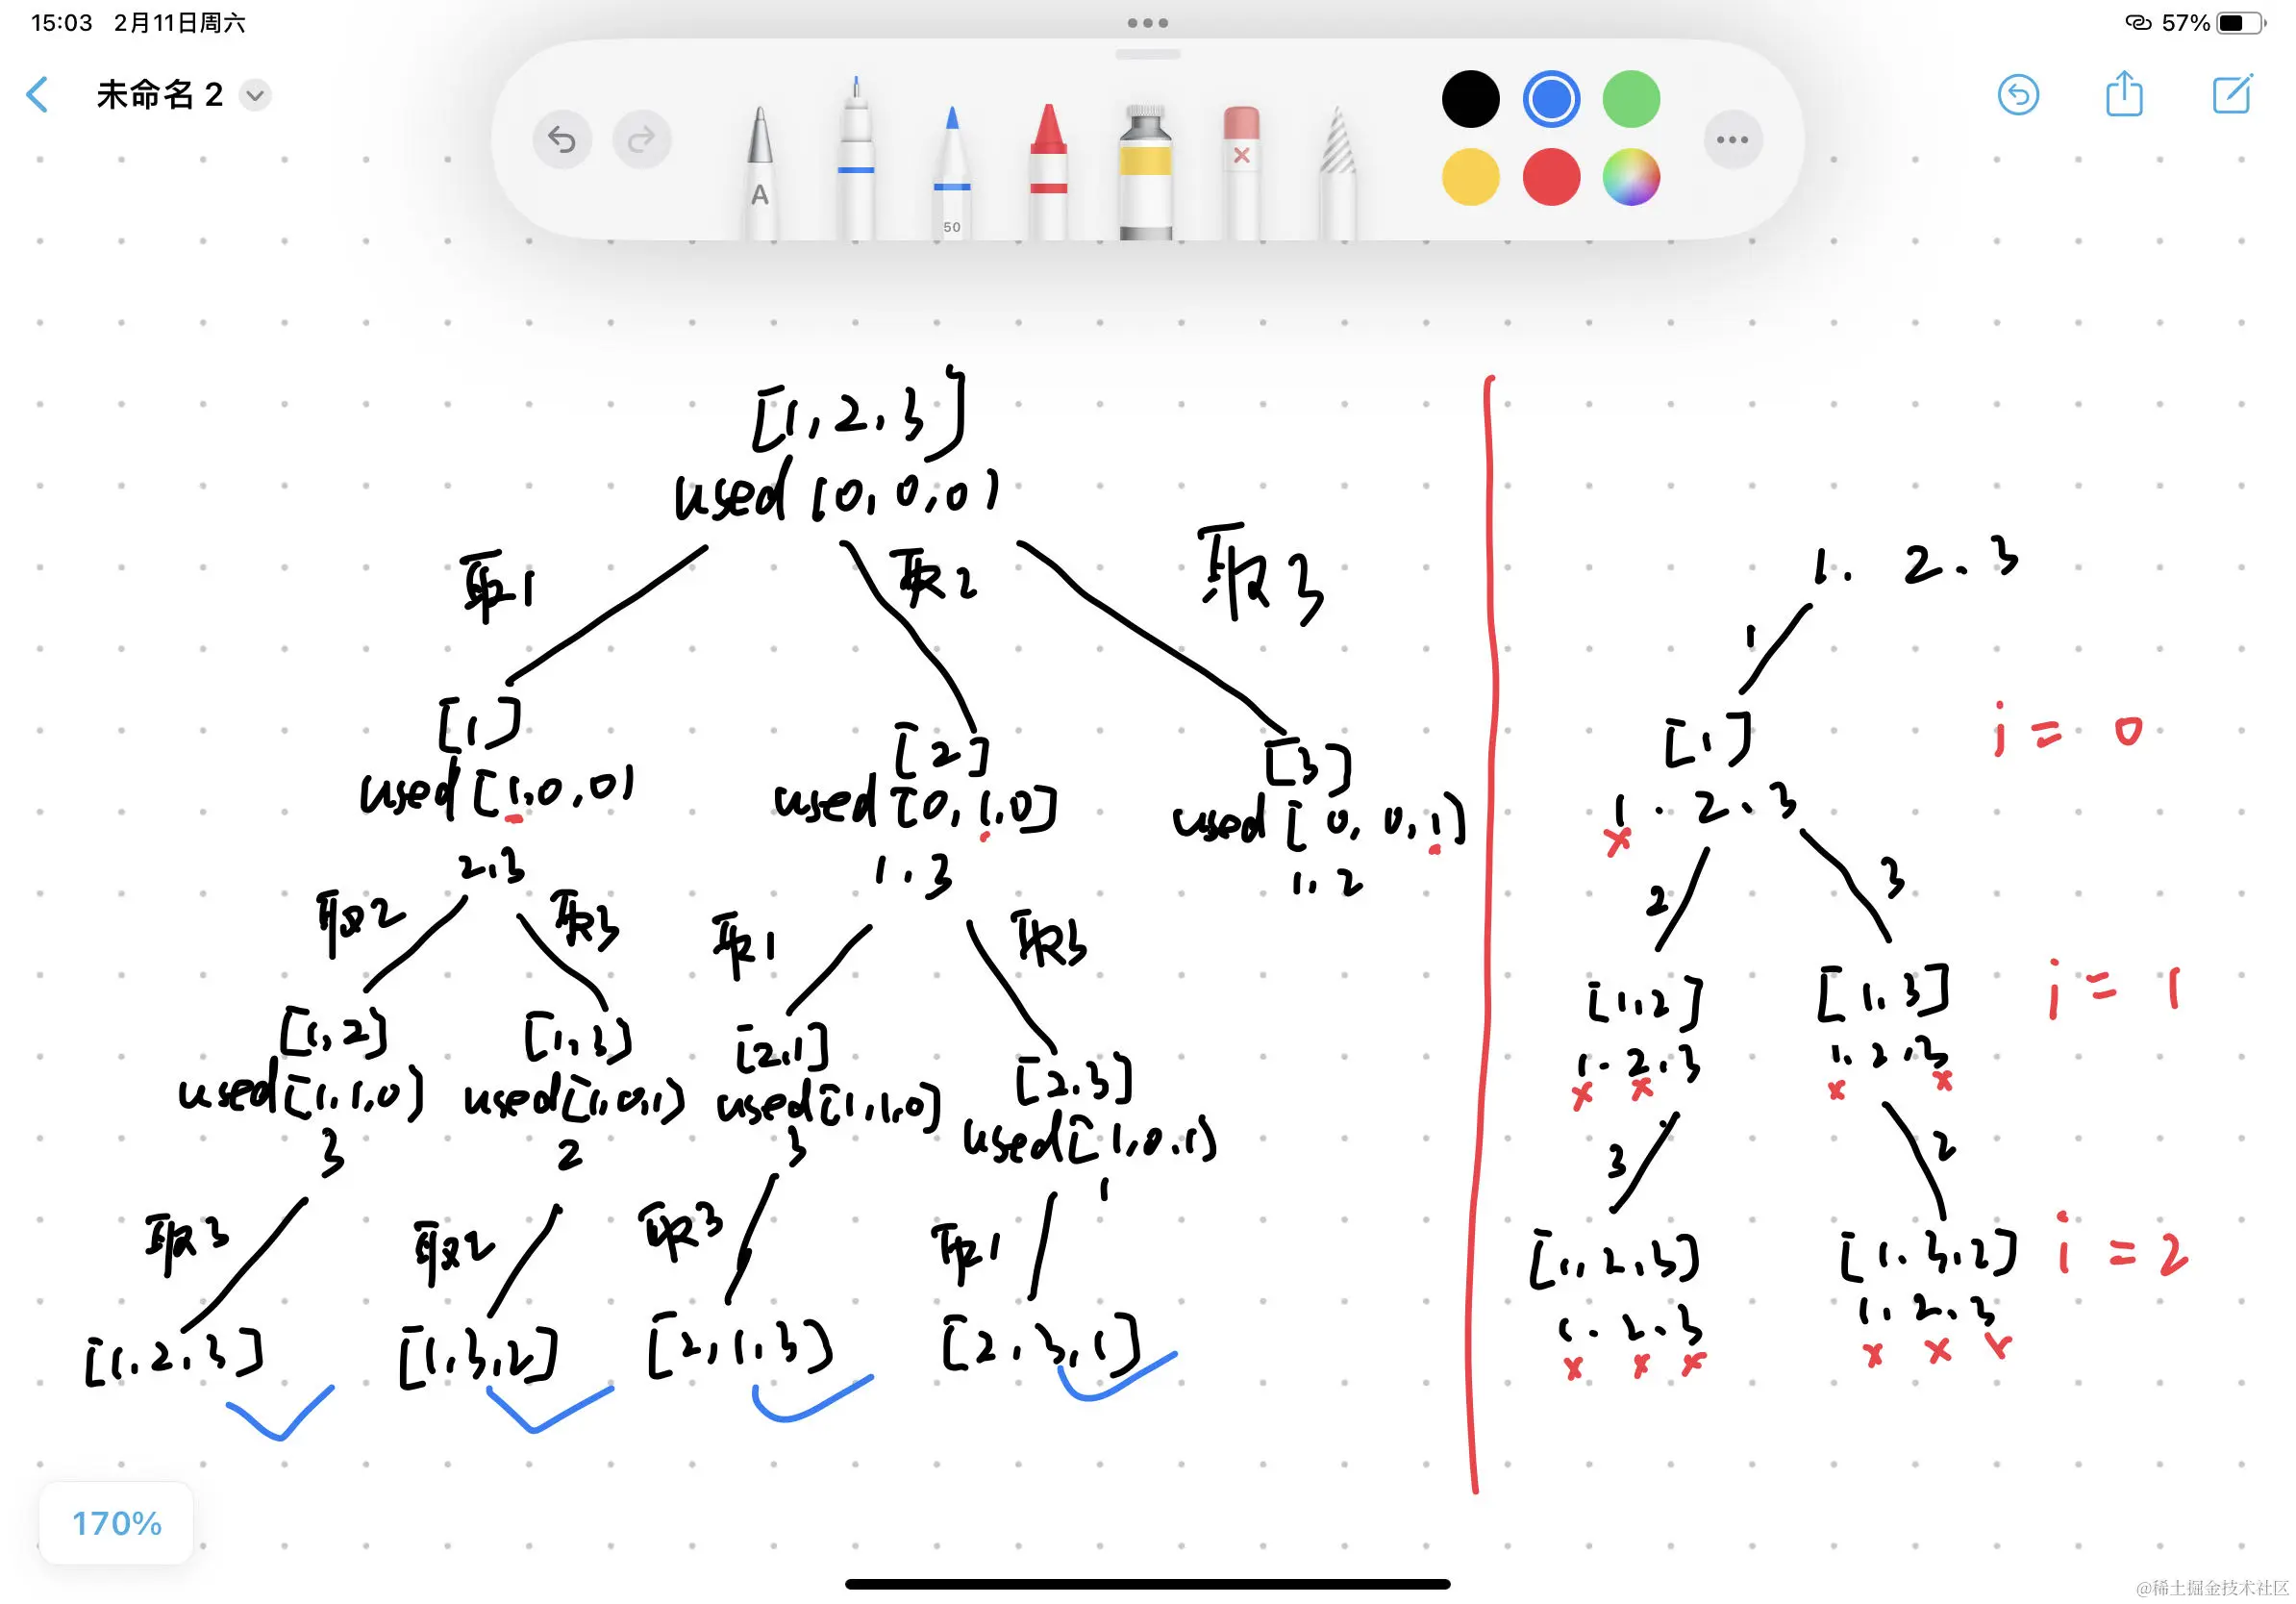 15:03 2月11日周六
57%
未命名 2
A
50
[1,2,3]
used[0,0,0]
取1
取2
取3
[1]
used[1,0,0]
2,3
[2]
used[0,1,0]
1.3
[3]
used[0,0,1]
1.2
取2
取3
取1
取3
[1,2]
used[1,1,0]
3
[1,3]
used[1,0,1]
2
[2,1]
used[1,1,0]
3
[2.3]
used[1,0,1]
1
取3
取2
取3
取1
[1.2.3]
[1,3,2]
[2,1,3]
[2,3,1]
1. 2.3
1
[1]
i = 0
1.2.3
x
2
3
[1,2]
[1.3]
i = 1
1.2.3
x x
1.2.3
x x
3
2
[1,2,3]
[1.3.2]
i = 2
1.2.3
x x x
1.2.3
x x x
170%
@稀土掘金技术社区